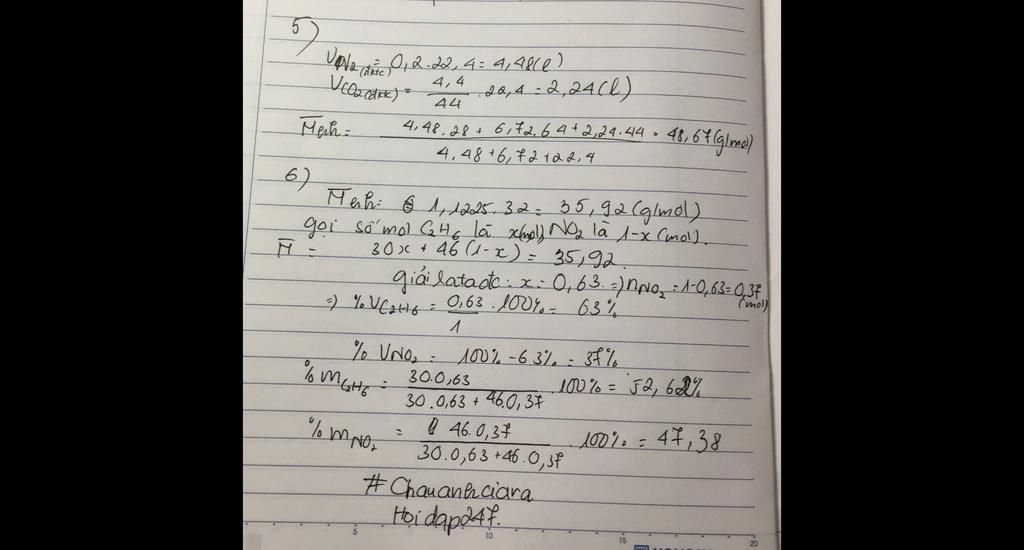 5)
V N2(đktc) = 0,2.22,4 = 4,48(l)
VCO2(đktc) = 4,4/44 . 22,4 = 2,24(l)
M̅hh = (4,48.28 + 6,72.64 + 2,24.44)/(4,48+6,72+22,4) = 48,67(g/mol)
6)
M̅hh = 1,1225.32 = 35,92(g/mol)
gọi số mol C2H6 là x(mol) NO2 là 1-x (mol).
M̅ = 30x + 46(1-x) = 35,92.
giải ra ta đc: x = 0,63 => nNO2 = 1-0,63 = 0,37 (mol)
=> %VC2H6 = 0,63/1 . 100% = 63%
% VNO2 = 100% - 63% = 37%
%mC2H6 = 30.0,63/(30.0,63 + 46.0,37) . 100% = 52,62%
%mNO2 = 46.0,37/(30.0,63+46.0,37) . 100% = 47,38
#Chauanhciara
Hoidap247.
5 10 15 20